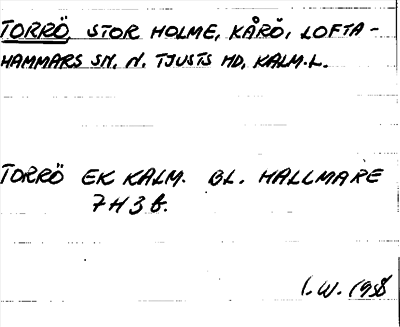 TORRÖ, STOR HOLME, KÅRÖ, LOFTA-
HAMMARS SN, N. TJUSTS HD, KALM.L.
TORRÖ EK KALM. BL. HALLMARE
7H3b.
I.W. 1958